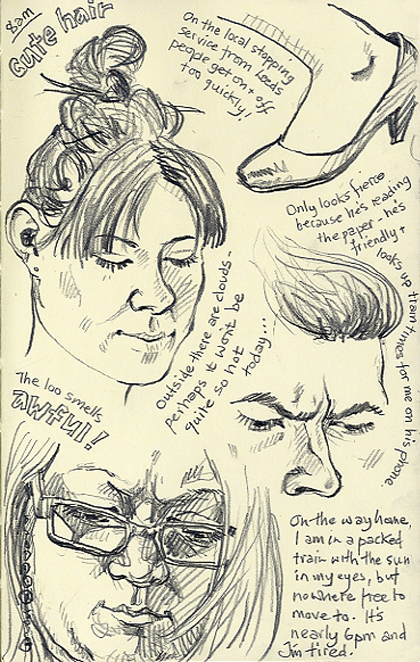 8am
cute hair
On the local stopping
service from Leeds
people get on + off
too quickly!
Only looks fierce
because he's reading
the paper - he's
friendly +
looks up train times for me on his phone.
Outside there are clouds -
perhaps it won't be
quite so hot
today...
The loo smells
AWFUL!
On the way home,
I am in a packed
train with the sun
in my eyes, but
nowhere free to
move to. It's
nearly 6pm and
I'm tired.